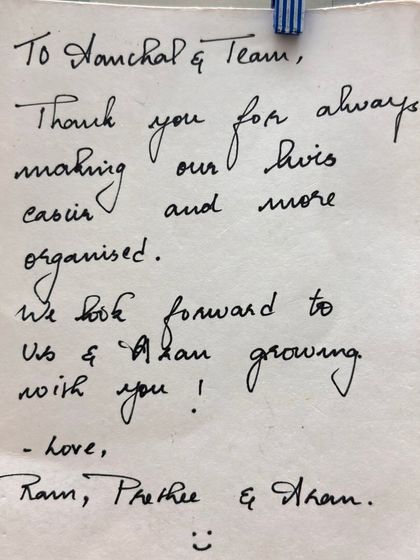 To Aanchal & Team,
Thank you for always
making our lives
easier and more
organised.
We look forward to
us & Aran growing
with you !
- Love,
Ram, Prethee & Aran.
:)